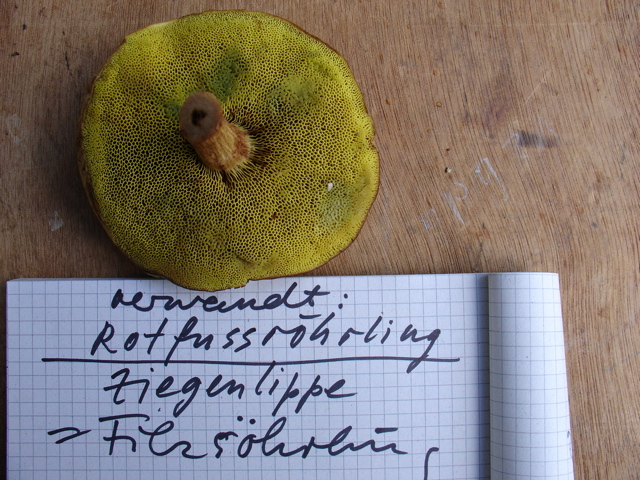 verwandt:
Rotfussröhrling
Ziegenlippe
= Filzröhrling